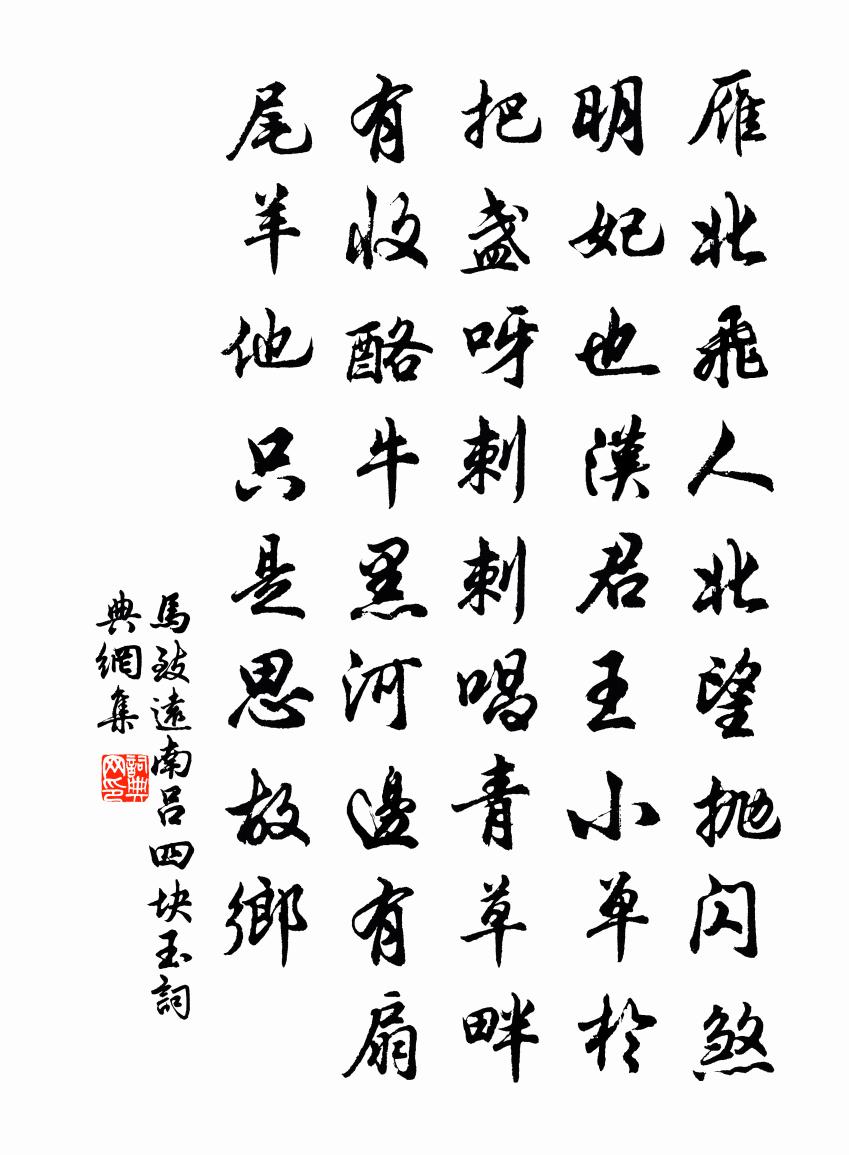 雁北飛人北望抛闪煞
明妃也漢君王小单於
把盏呀剌剌唱青草畔
有收酪牛黑河邊有扇
尾羊他只是思故鄉
馬致遠南呂四块玉詞
典網集
詞典
网印